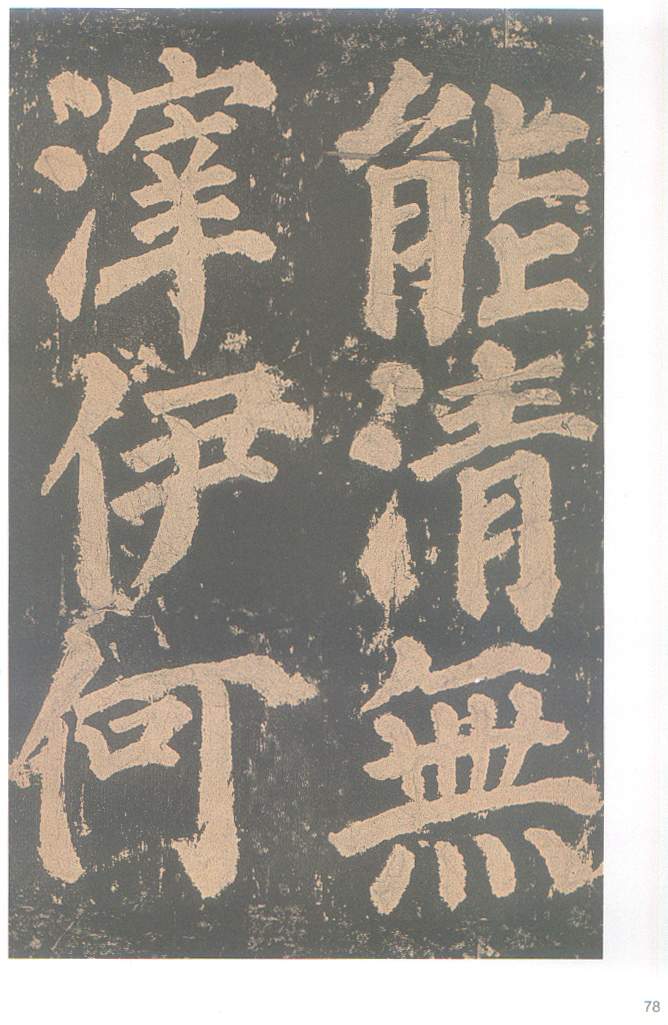 能清無
滓伊何
78